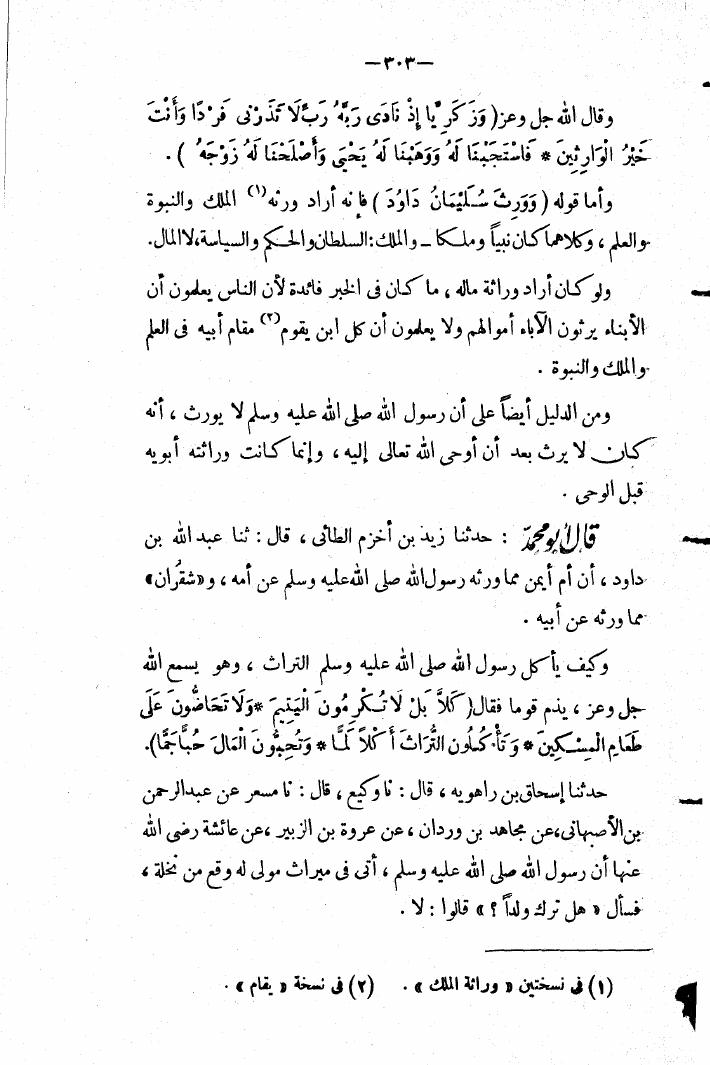 —٣٠٣—
وقال الله جل وعز( وَزَكَرِيَّا إِذْ نَادَى رَبَّهُ رَبِّ لَا تَذَرْنِى فَرْدًا وَأَنْتَ
خَيْرُ الْوَارِثِينَ * فَاسْتَجَبْنَا لَهُ وَوَهَبْنَا لَهُ يَحْيَى وَأَصْلَحْنَا لَهُ زَوْجَهُ ) .
وأما قوله ( وَوَرِثَ سُلَيْمَانُ دَاوُدَ ) فإنه أراد ورثه(١) الملك والنبوة
والعلم ، وكلاهما كان نبياً وملكا — والملك : السلطان والحكم والسياسة، لا المال.
ولو كان أراد وراثة ماله ، ما كان فى الخبر فائدة لأن الناس يعلمون أن
الأبناء يرثون الآباء أموالهم ولا يعلمون أن كل ابن يقوم(٢) مقام أبيه فى العلم
والملك والنبوة .
ومن الدليل أيضاً على أن رسول الله صلى الله عليه وسلم لا يورث ، أنه
كان لا يرث بعد أن أوحى الله تعالى إليه ، وإنما كانت وراثته أبويه
قبل الوحى .
قال أبو محمد : حدثنا زيد بن أخزم الطائى ، قال : ثنا عبد الله بن
داود ، أن أم أيمن مما ورثه رسول الله صلى الله عليه وسلم عن أمه ، و«شقُران»
مما ورثه عن أبيه .
وكيف يأكل رسول الله صلى الله عليه وسلم التراث ، وهو يسمع الله
جل وعز ، يذم قوما فقال( كَلَّا بَلْ لَا تُكْرِمُونَ الْيَتِيمَ * وَلَا تَحَاضُّونَ عَلَى
طَعَامِ الْمِسْكِينَ * وَتَأْكُلُونَ التُّرَاثَ أَكْلاً لَمَّا * وَتُحِبُّونَ الْمَالَ حُبًّا جَمًّا).
حدثنا إسحاق بن راهويه ، قال : نا وكيع ، قال : نا مسعر عن عبد الرحمن
بن الأصبهانى، عن مجاهد بن وردان ، عن عروة بن الزبير ، عن عائشة رضى الله
عنها أن رسول الله صلى الله عليه وسلم ، أتى فى ميراث مولى له وقع من نخلة ،
فسأل « هل ترك ولداً ؟ » قالوا : لا .
(١) فى نسختين « وراثة الملك » . (٢) فى نسخة « يقام » .